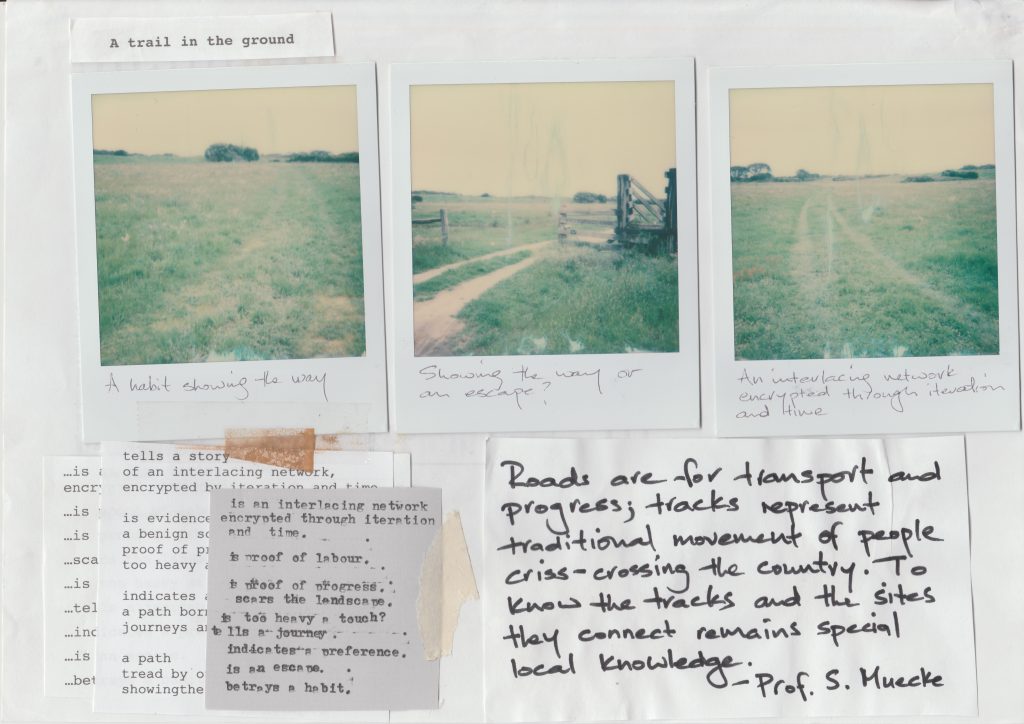 A trail in the ground
A habit showing the way
Showing the way or
an escape?
An interlacing network
encrypted through iteration
and time
…is
encry
…is
…is
…sca
…is
…tel
…is
…bet
tells a story
of an interlacing network,
encrypted by iteration and time
is evidence
a benign
proof of
too heavy
indicates
a path
journeys
a path
tread by
showingthe
is an interlacing network
encrypted through iteration
and time.
is proof of labour.
is proof of progress.
scars the landscape.
is too heavy a touch?
tells a journey.
indicates a preference.
is an escape.
betrays a habit.
Roads are for transport and
progress; tracks represent
traditional movement of people
criss-crossing the country. To
know the tracks and the sites
they connect remains special
local knowledge.
- Prof. S. Muecke